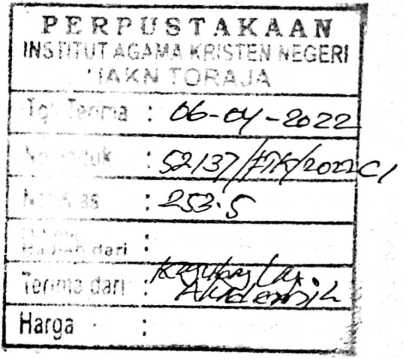 PERPUSTAKAAN
INSTITUT AGAMA KRISTEN NEGERI
IAKN TORAJA
Tgl. Terima : 06-04-2022
: 52137/FTK/2022 C1
: 253.5
dari :
Terima dari :
Harga :